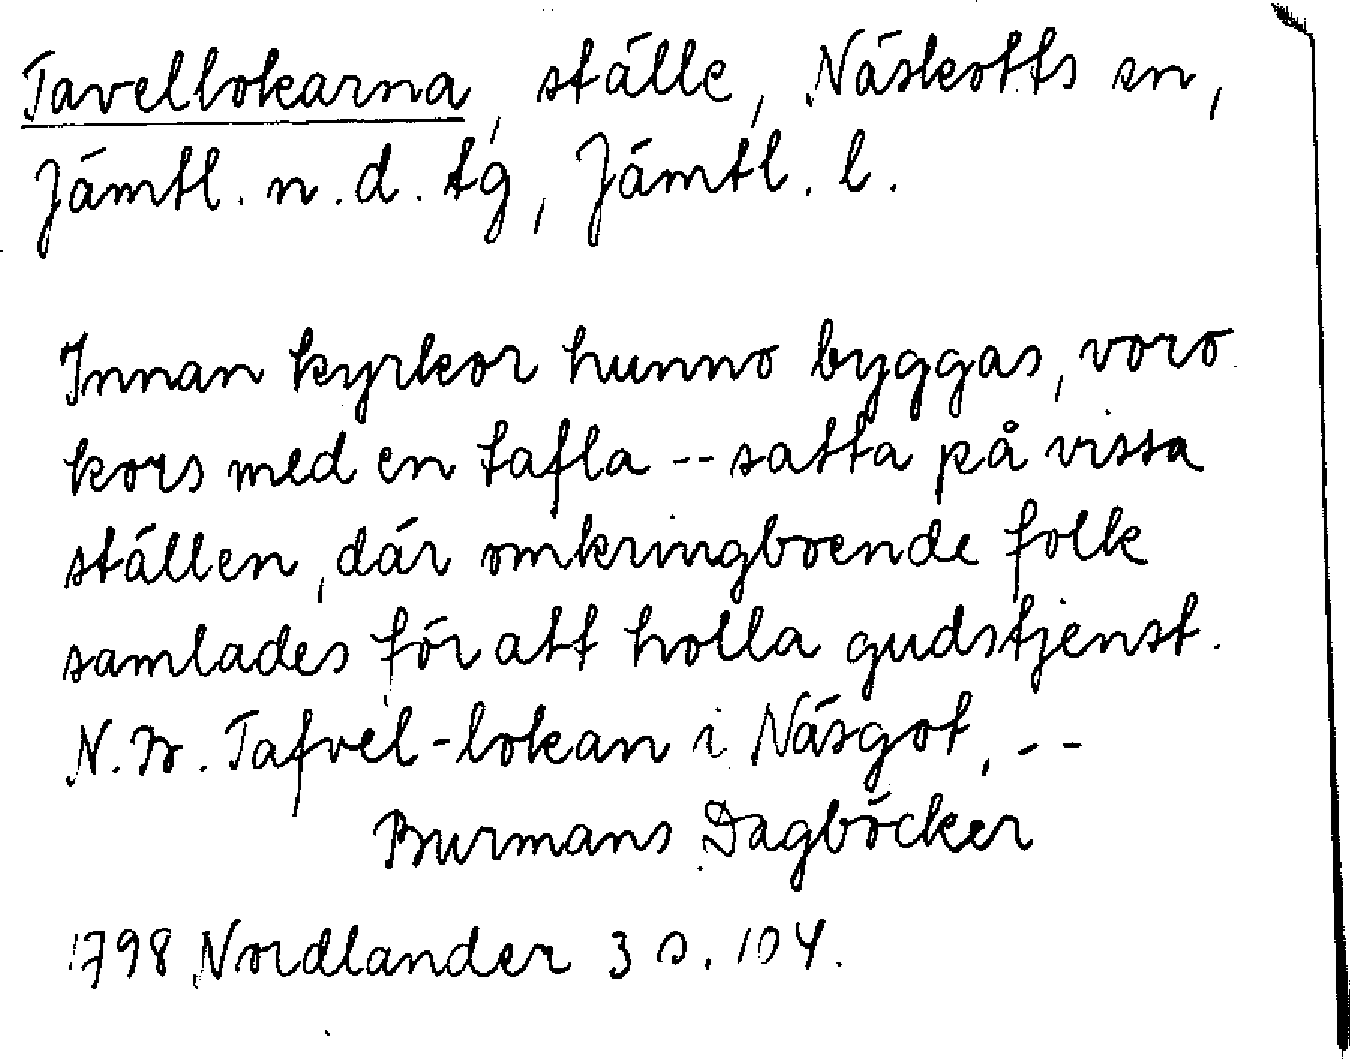 Tavellokarna, ställe, Näskotts sn,
Jämtl. n. d. tg, Jämtl. l.
Innan kyrkor hunno byggas, voro
kors med en tafla -- satta på vissa
ställen, där omkringboende folk
samlades för att holla gudstjenst.
N.B. Tafvel-lokan i Näsgot, --
Burmans Dagböcker
1798 Nordlander 3 s. 104.